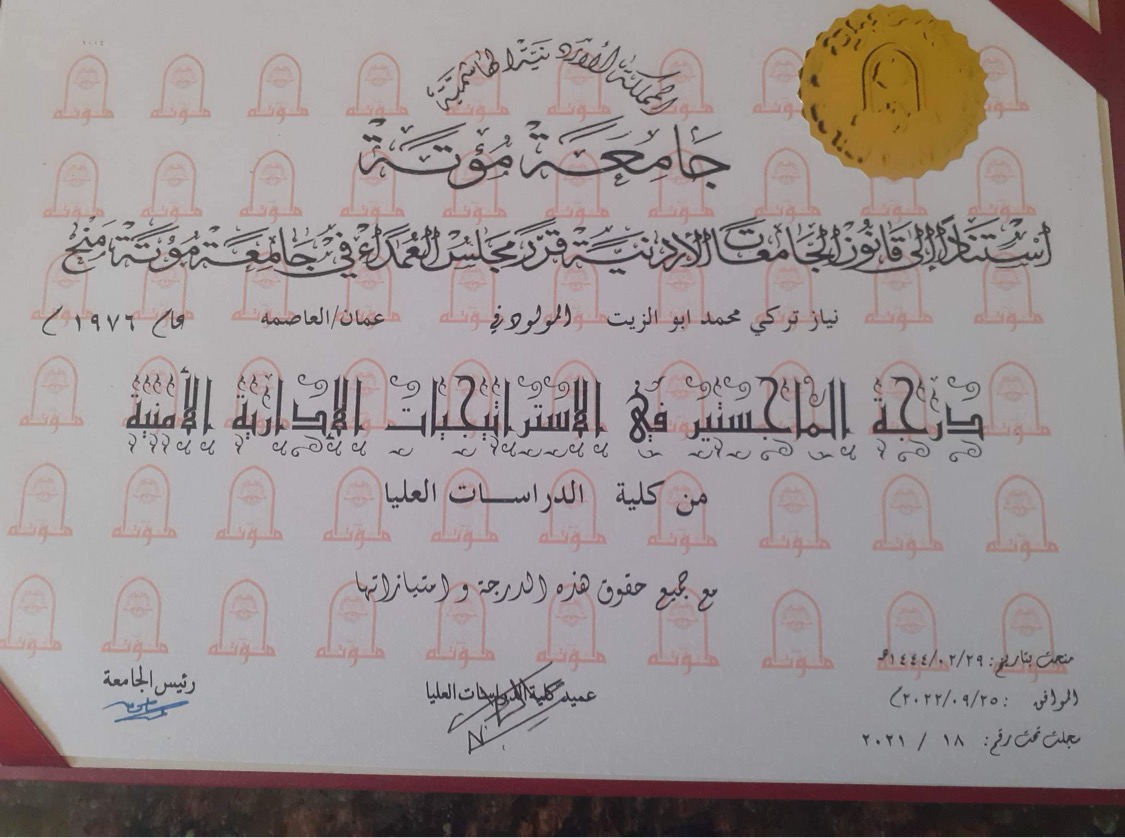 ١٠١٤
المملكة الأردنية الهاشمية
جامعة مؤتة
استناداً إلى قانون الجامعات الأردنية قرر مجلس العمداء في جامعة مؤتة منح
نياز تركي محمد ابو الزيت المولود في عمان/العاصمه عام ١٩٧٦م
درجة الماجستير في الاستراتيجيات الإدارية الأمنية
من كلية الدراسات العليا
مع جميع حقوق هذه الدرجة و امتيازاتها
منحت بتاريخ: ١٤٤٤/٠٢/٢٩هـ
الموافق : ٢٠٢٢/٠٩/٢٥م
سجلت تحت رقم: ١٨ / ٢٠٢١
عميد كلية الدراسات العليا
رئيس الجامعة
مؤته